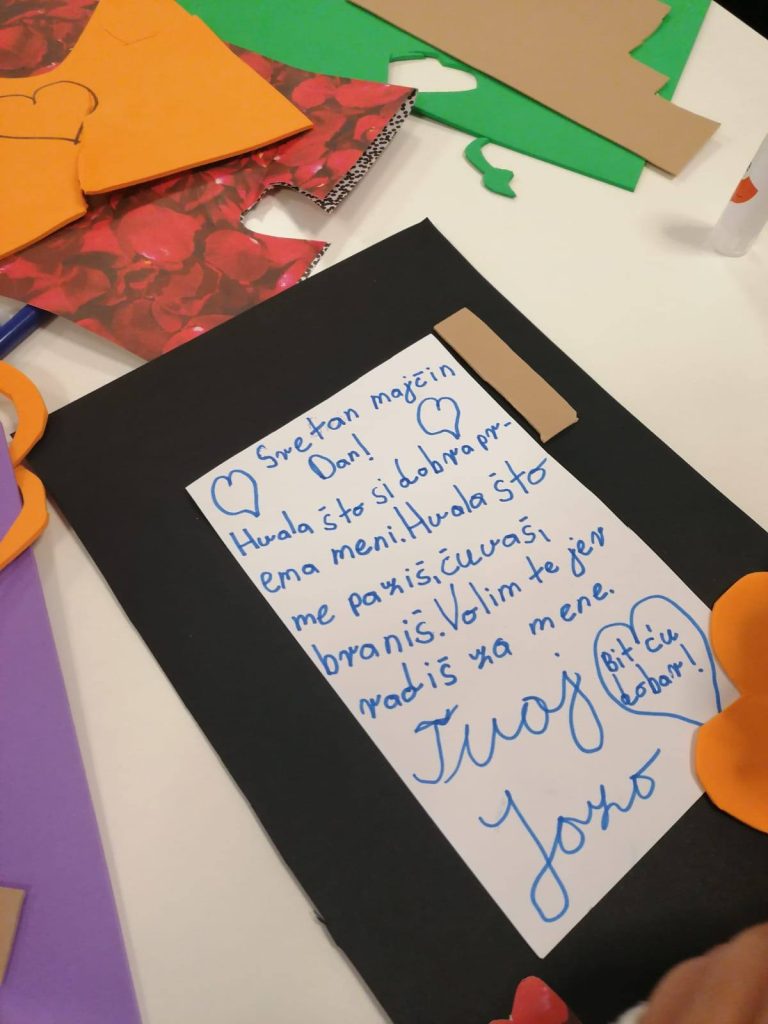 Sretan majčin
Dan!
Hvala što si dobra pr-
ema meni. Hvala što
me paziš, čuvaš,
braniš. Volim te jer
radiš za mene.
Bit ću
dobar!
Tvoj
Jozo